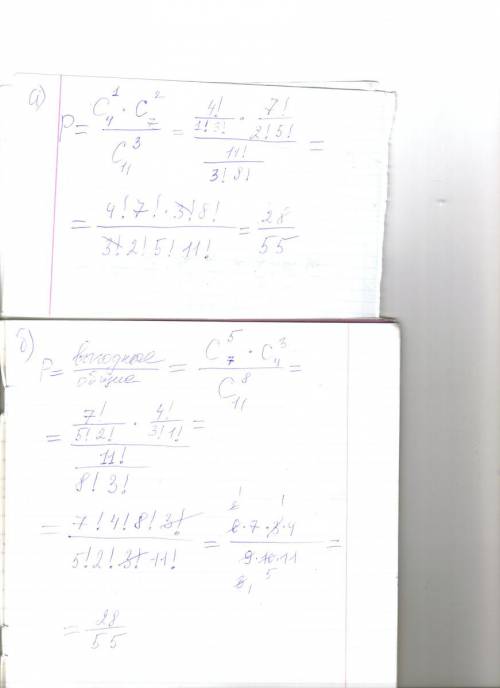 а)
P = (C₄¹ · C₇²) / C₁₁³ = (4!/(1!3!) · 7!/(2!5!)) / (11!/(3!8!)) =
= (4! 7! · 3! 8!) / (3! 2! 5! 11!) = 28/55
б)
P = выгодные/общие = (C₇⁵ · C₄³) / C₁₁⁸ =
= (7!/(5!2!) · 4!/(3!1!)) / (11!/(8!3!)) =
= (7! 4! 8! 3!) / (5! 2! 3! 11!) = (6·7·3·4) / (9·10·11) =
= 28/55